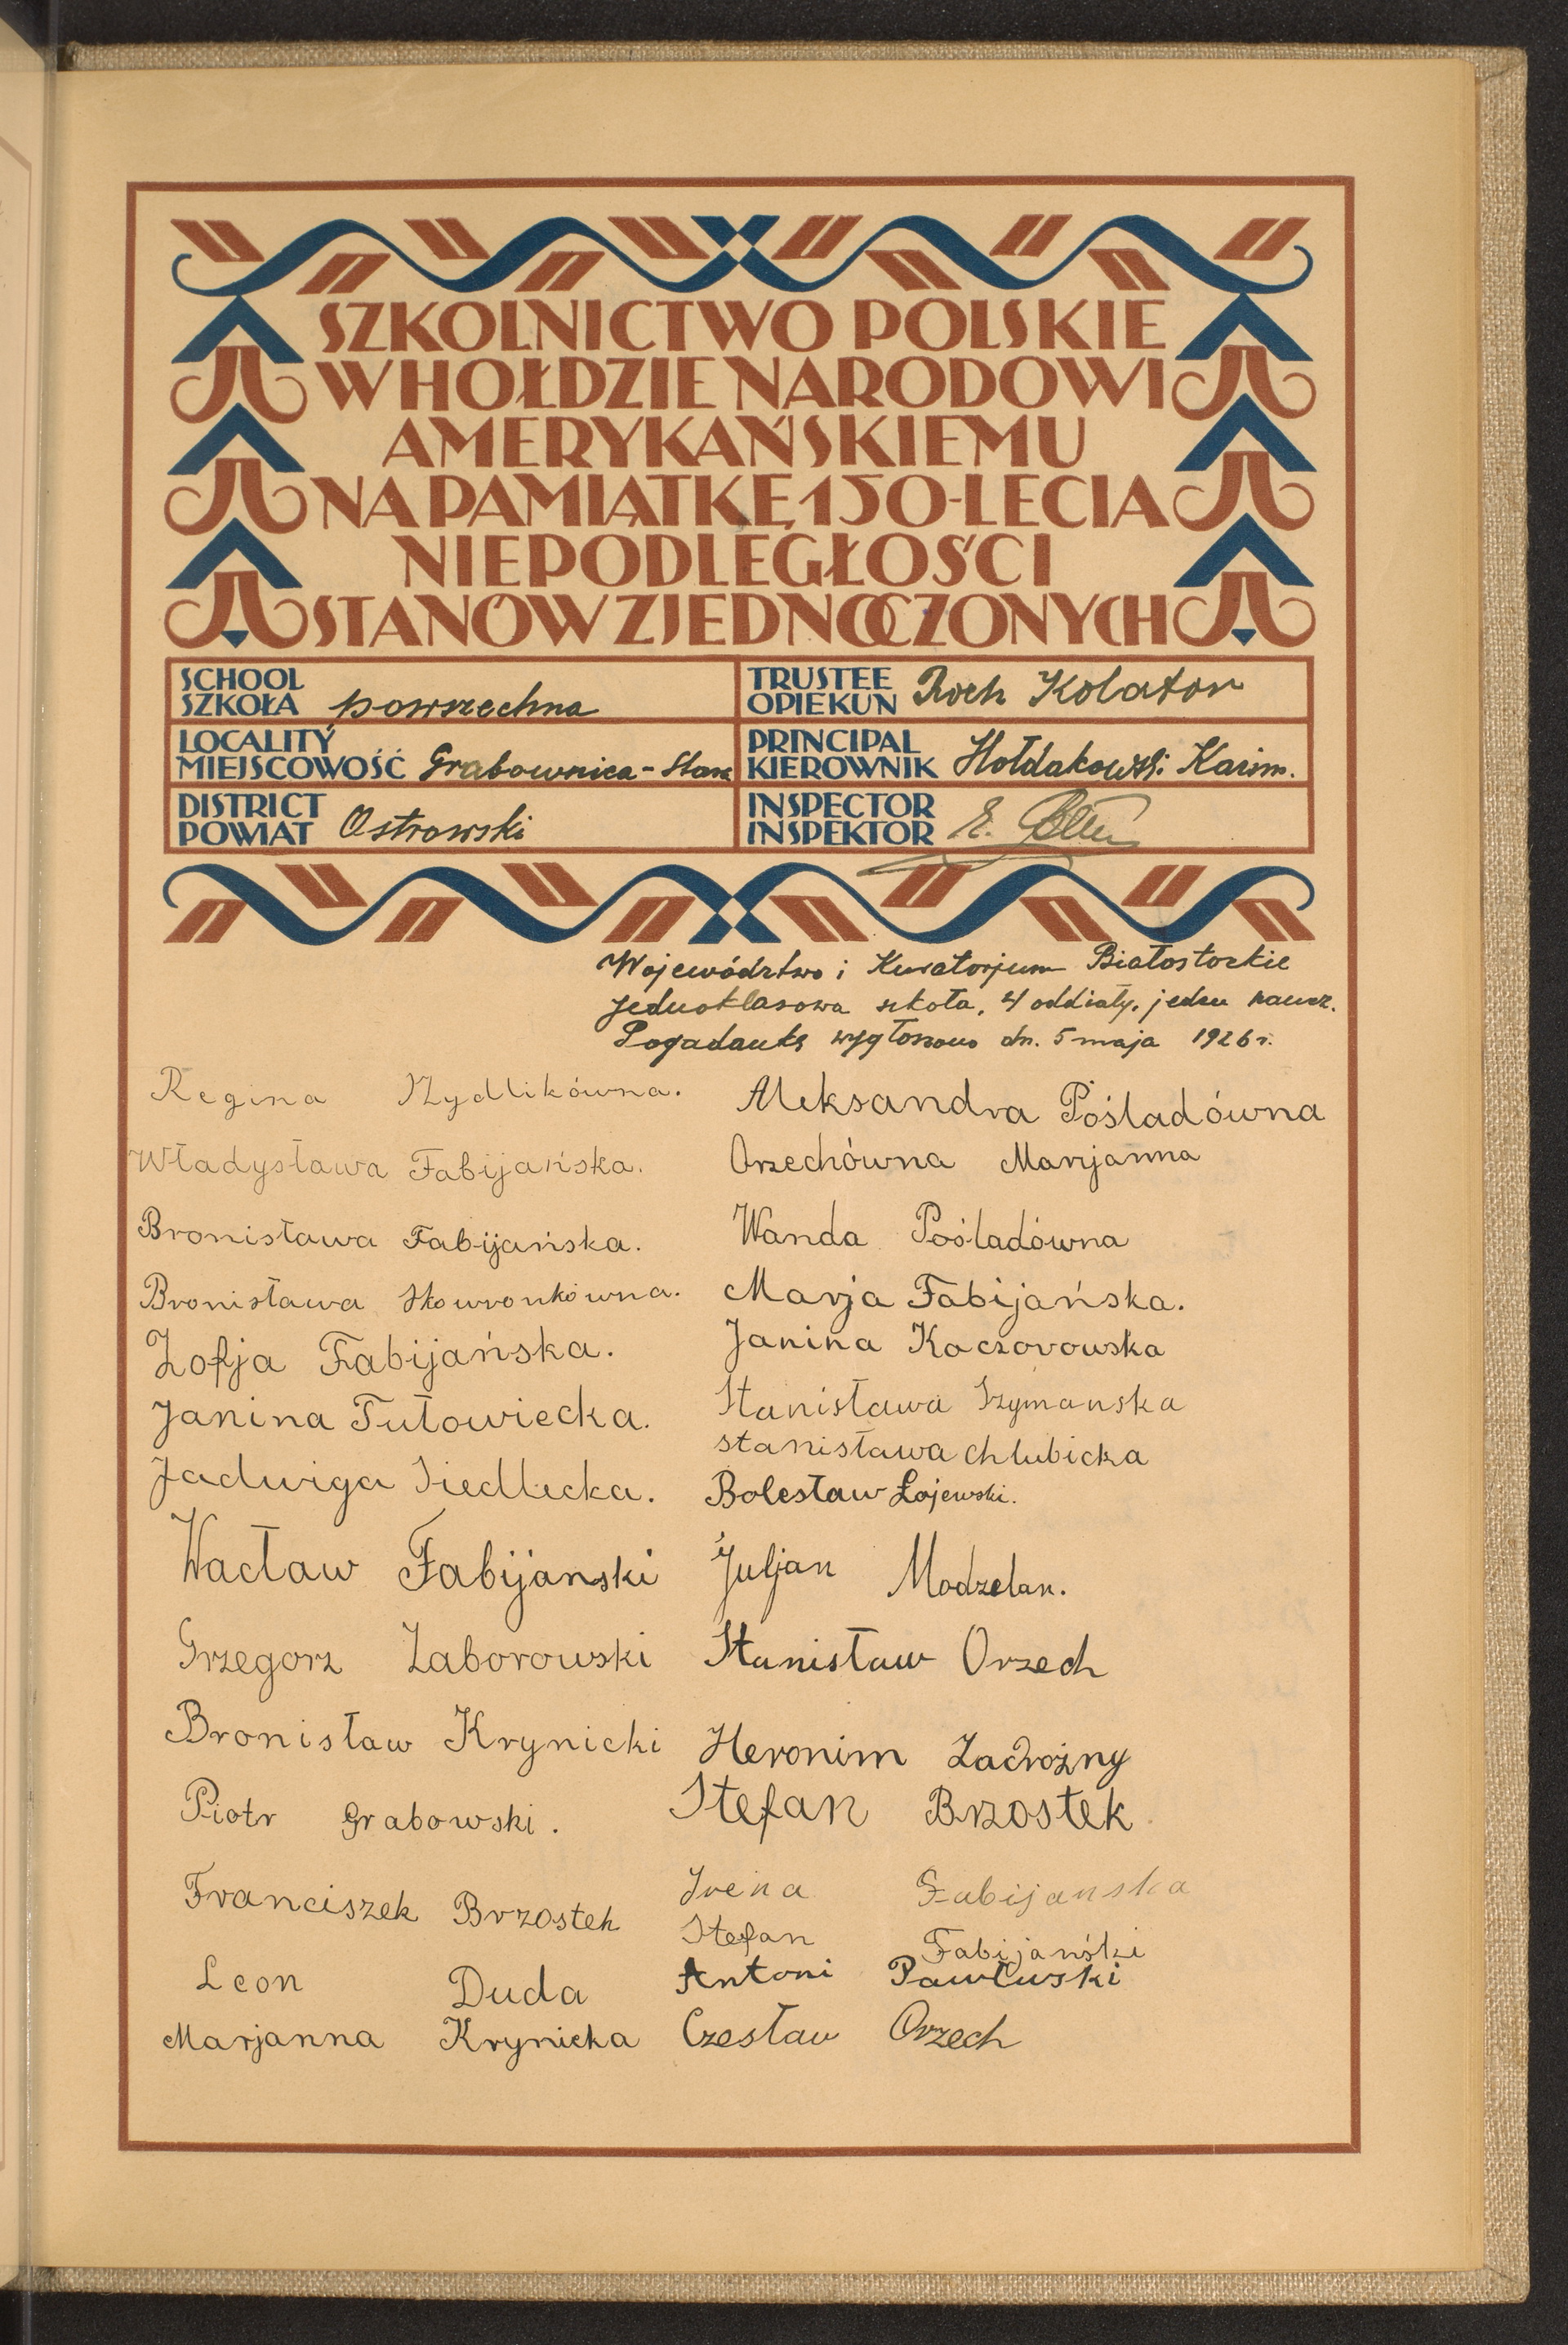 SZKOLNICTWO POLSKIE
W HOŁDZIE NARODOWI
AMERYKAŃSKIEMU
NA PAMIĄTKĘ 150-LECIA
NIEPODLEGŁOŚCI
STANÓW ZJEDNOCZONYCH
SCHOOL
SZKOŁA powszechna
TRUSTEE
OPIEKUN Roch Kolator
LOCALITY
MIEJSCOWOŚĆ Grabownica-Stara
PRINCIPAL
KIEROWNIK Hołdakowski Kazim.
DISTRICT
POWIAT Ostrowski
INSPECTOR
INSPEKTOR
Województwo i Kuratorjum Białostockie
jednoklasowa szkoła, 4 oddziały, jeden naucz.
Pogadankę wygłoszono dn. 5 maja 1926 r.
Regina Szydlikówna.
Władysława Fabijańska.
Bronisława Fabijańska.
Bronisława Skowronkówna.
Zofja Fabijańska.
Janina Tutowiecka.
Jadwiga Siedlecka.
Wacław Fabijanski
Grzegorz Zaborowski
Bronisław Krynicki
Piotr Grabowski.
Franciszek Brzostek
Leon Duda
Marjanna Krynicka
Aleksandra Pośladówna
Orzechówna Marjanna
Wanda Pośladówna
Marja Fabijańska.
Janina Kaczorowska
Stanisława Szymanska
stanisława chlubicka
Bolesław Łojewski.
Juljan Modzelan.
Stanisław Orzech
Heronim Zadrożny
Stefan Brzostek
Irena Fabijanska
Stefan Fabijański
Antoni Pawluski
Czesław Orzech